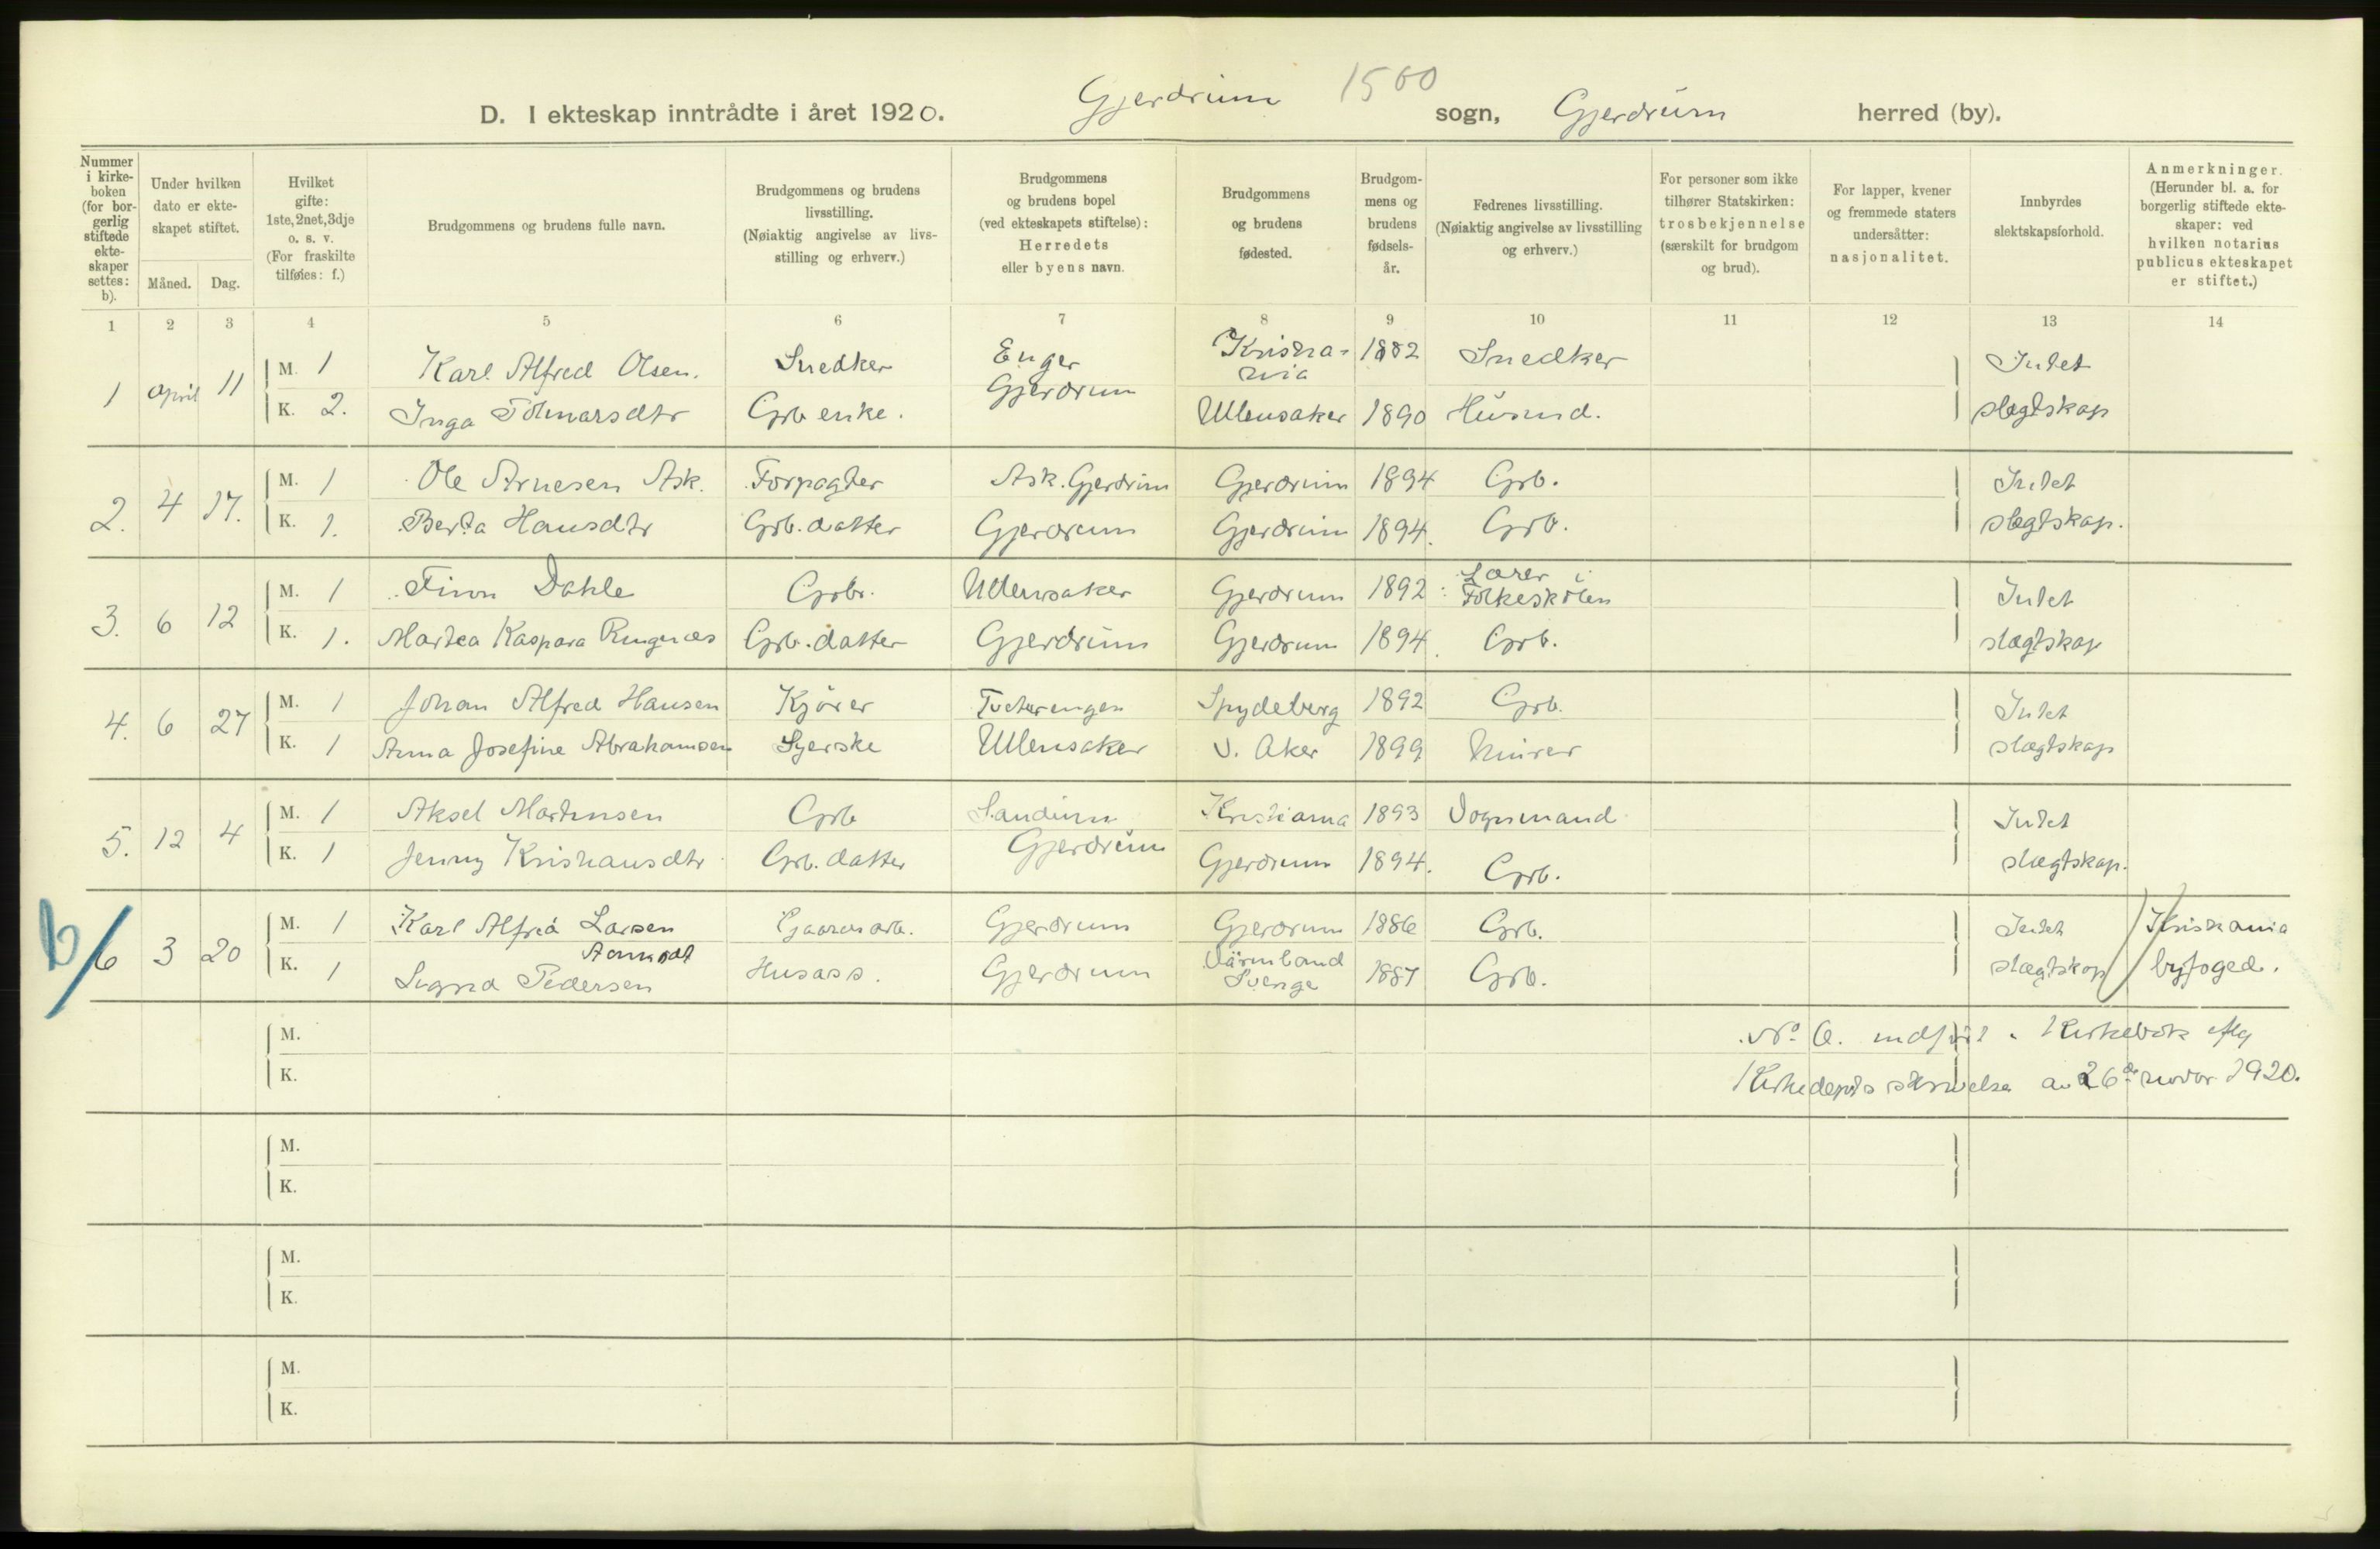 D. I ekteskap inntrådte i året 1920. Gjerdrum 1500 sogn, Gjerdrum herred (by).
Nummer i kirkeboken (for borgerlig stiftede ekteskaper settes: b).
Under hvilken dato er ekteskapet stiftet.
Måned. Dag.
Hvilket gifte: 1ste, 2net, 3dje o. s. v. (For fraskilte tilføies: f.)
Brudgommens og brudens fulle navn.
Brudgommens og brudens livsstilling. (Nøiaktig angivelse av livsstilling og erhverv.)
Brudgommens og brudens bopel (ved ekteskapets stiftelse): Herredets eller byens navn.
Brudgommens og brudens fødested.
Brudgommens og brudens fødselsår.
Fedrenes livsstilling. (Nøiaktig angivelse av livsstilling og erhverv.)
For personer som ikke tilhører Statskirken: trosbekjennelse (særskilt for brudgom og brud).
For lapper, kvener og fremmede staters undersåtter: nasjonalitet.
Innbyrdes slektskapsforhold.
Anmerkninger. (Herunder bl. a. for borgerlig stiftede ekteskaper: ved hvilken notarius publicus ekteskapet er stiftet.)
1 2 3 4 5 6 7 8 9 10 11 12 13 14
1 April 11 M. 1 Karl Alfred Olsen. Snedker Enger Gjerdrum Kristiania 1882 Snedker Intet
K. 2. Inga Tolmarsdtr Grb enke. Ullensaker 1890 Husmd. slegtskap
2. 4 17. M. 1 Ole Arnesen Ask. Forpagter Ask. Gjerdrum Gjerdrum 1894 Grb. Intet
K. 1. Berta Hansdtr Grb. datter Gjerdrum Gjerdrum 1894. Grb. slegtskap.
3. 6 12 M. 1 Finn Dahle Grbr. Ullensaker Gjerdrum 1892 Lærer i Folkeskolen Intet
K. 1. Martea Kaspara Ringnæs Grb. datter Gjerdrum Gjerdrum 1894. Grb. slægtskap
4. 6 27 M. 1 Johan Alfred Hansen Kjörer Tveterengen Spydeberg 1892 Grb. Intet
K. 1 Anna Josefine Abrahamsen Syerske Ullensaker V. Aker 1899 Murer slægtskap
5. 12 4 M. 1 Aksel Martinsen Grb Sandum Kristiania 1893 Vognmand Intet
K. 1 Jenny Kristiansdtr Grb. datter Gjerdrum Gjerdrum 1894. Grb. slægtskap.
b/ 6 3 20 M. 1 Karl Alfred Larsen Gaardarb. Gjerdrum Gjerdrum 1886 Grb. Intet Kristiania
K. 1 Signa Pedersen Husass. Gjerdrum Värmland Sverge 1887 Grb. slægtskap byfoged.
M.
K.
No 6. indført i Kirkebok iflg
Kirkedepts skrivelse av 26de novbr 1920.
M.
K.
M.
K.
M.
K.